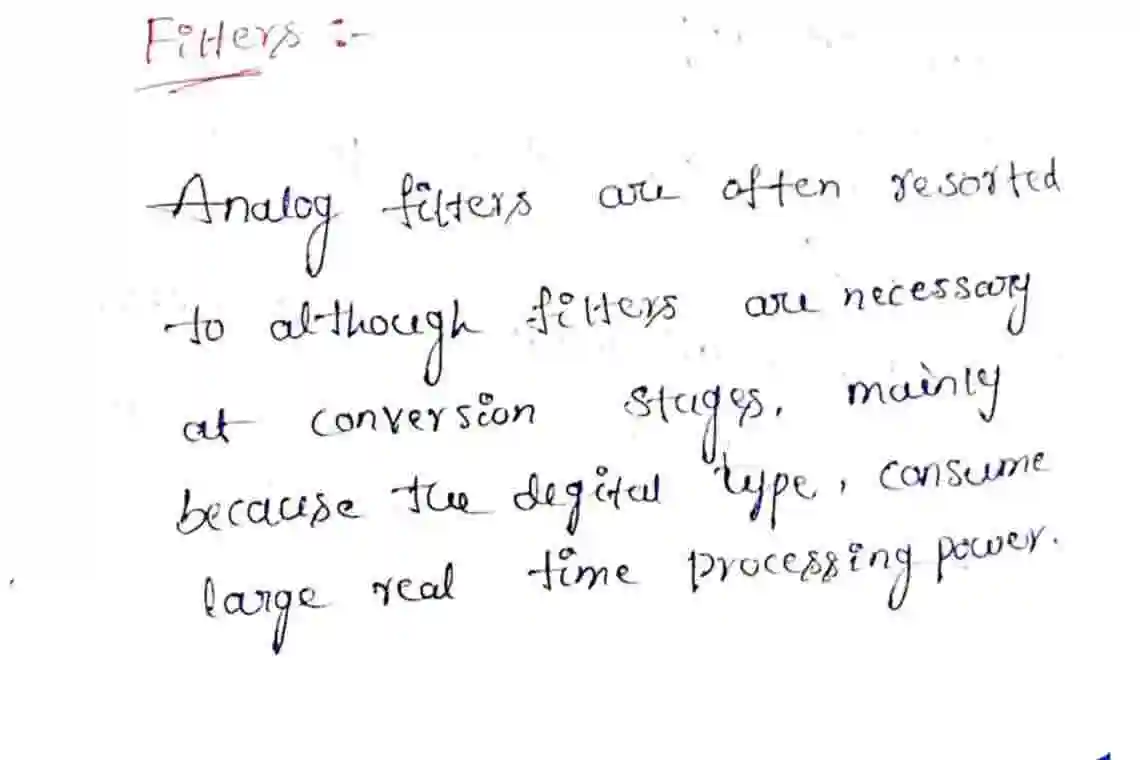 Filters :-
Analog filters are often resorted
to although filters are necessary
at conversion stages, mainly
because the degital type, consume
large real time processing power.